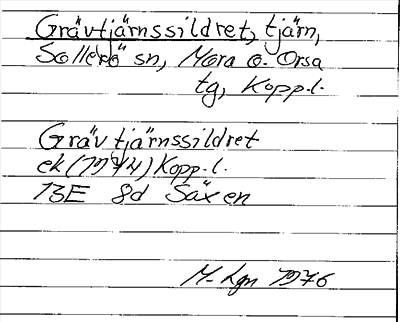 Grävtjärnssildret, tjärn,
Sollerö sn, Mora o. Orsa
tg, Kopp.l.
Grävtjärnssildret
ek (1974) Kopp.l.
13E 8d Säxen
M-Lgn 1976